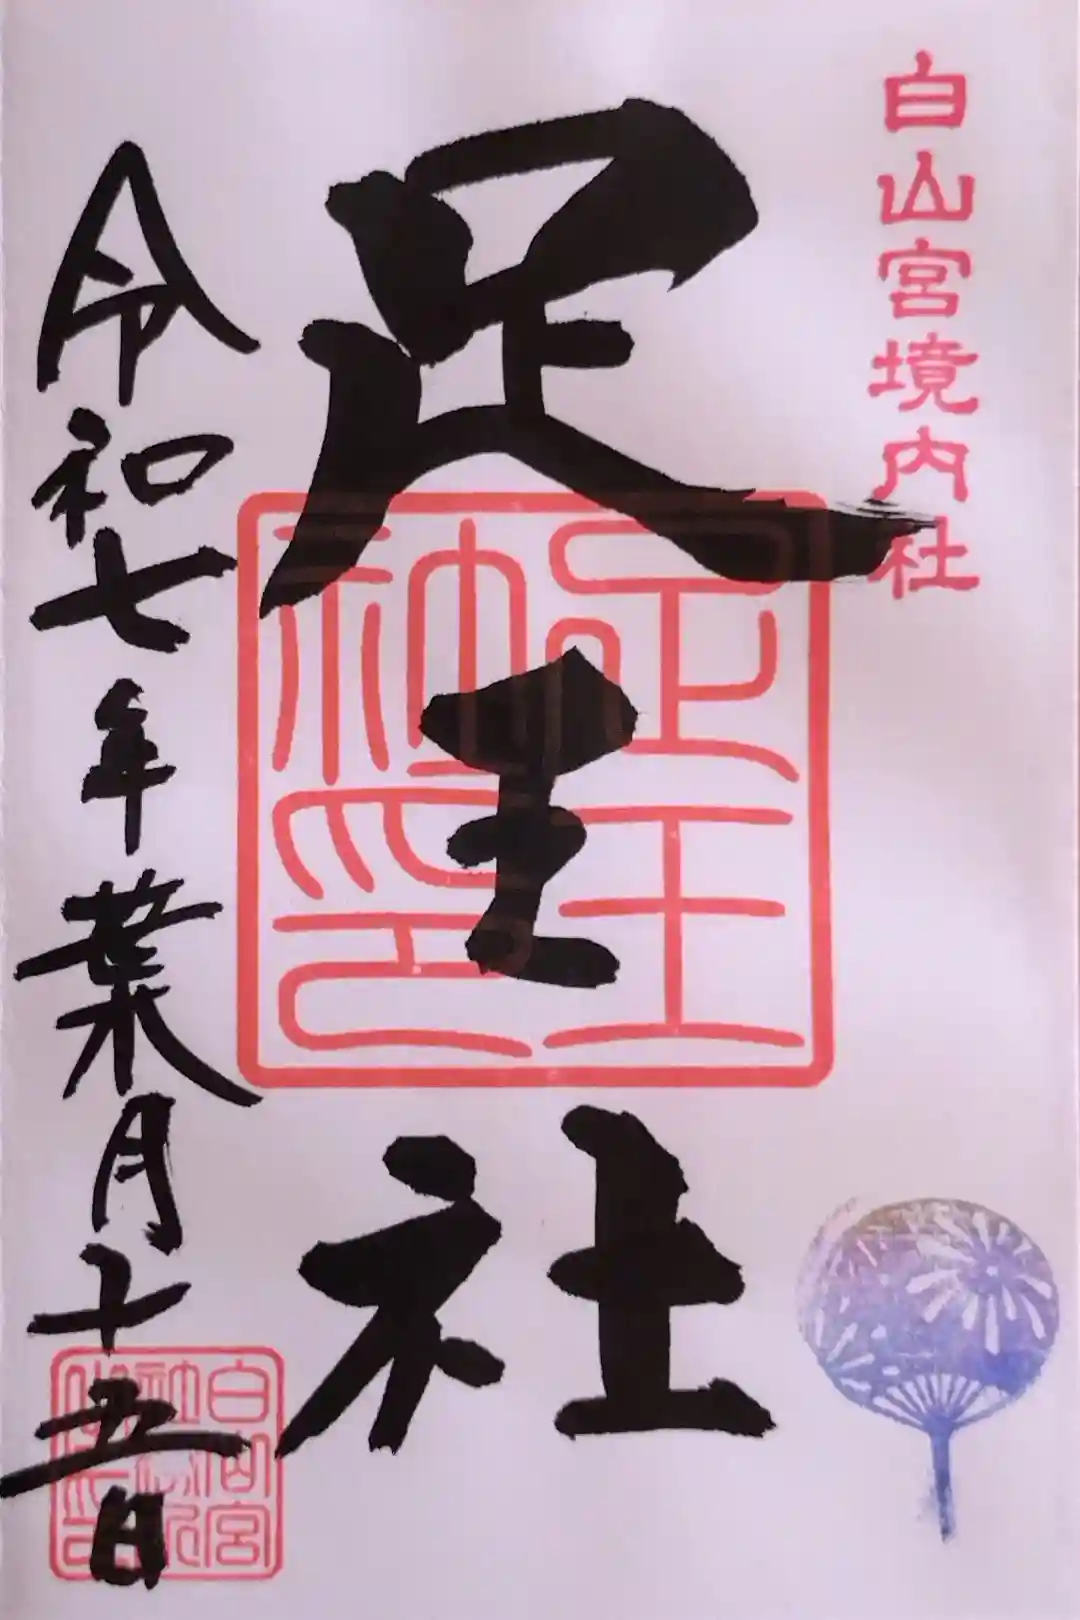 白山宮境内社
足王社
足王
社印
令和七年葉月十五日
白山宮